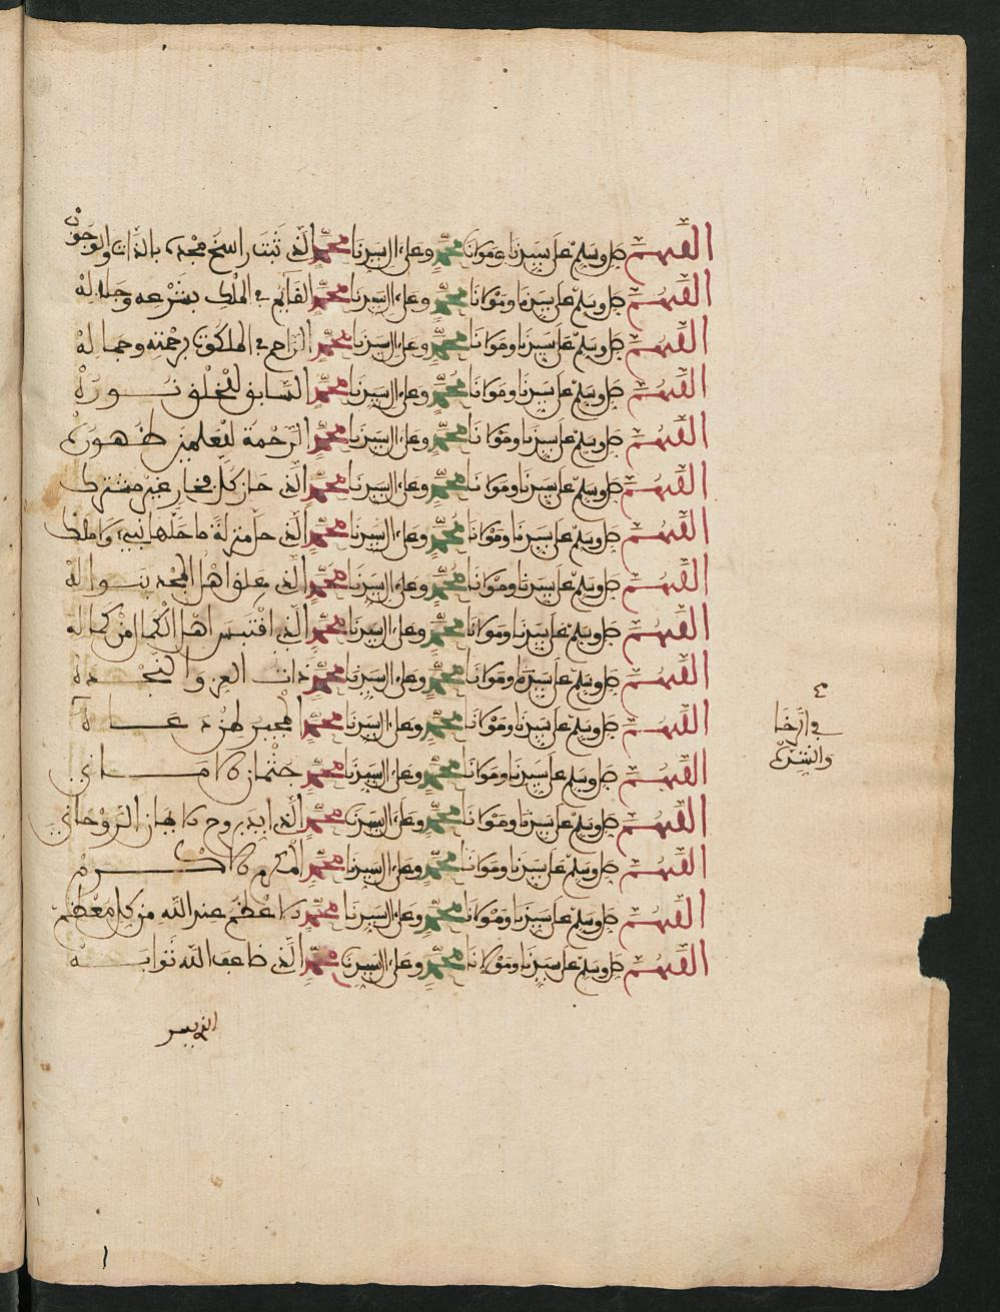 اللهم صل وسلم على سيدنا ومولانا محمد وعلى ال سيدنا محمد الذي ثبت راسخ مجده بالذات والوجود
اللهم صل وسلم على سيدنا ومولانا محمد وعلى ال سيدنا محمد القايم في الملك بشرعه وجلاله
اللهم صل وسلم على سيدنا ومولانا محمد وعلى ال سيدنا محمد الراحم في الملكوت برحمته وجماله
اللهم صل وسلم على سيدنا ومولانا محمد وعلى ال سيدنا محمد السابق للخلق نوره
اللهم صل وسلم على سيدنا ومولانا محمد وعلى ال سيدنا محمد الرحمة للعلمين ظهوره
اللهم صل وسلم على سيدنا ومولانا محمد وعلى ال سيدنا محمد الذي حاز كل فخار غير مشترك
اللهم صل وسلم على سيدنا ومولانا محمد وعلى ال سيدنا محمد الذي حل منزلة ما حلها نبيء ولا ملك
اللهم صل وسلم على سيدنا ومولانا محمد وعلى ال سيدنا محمد الذي علق اهل المجد بنواله
اللهم صل وسلم على سيدنا ومولانا محمد وعلى ال سيدنا محمد الذي اقتبس اهل الكمال من كماله
اللهم صل وسلم على سيدنا ومولانا محمد وعلى ال سيدنا محمد ذات العز والنجدة
اللهم صل وسلم على سيدنا ومولانا محمد وعلى ال سيدنا محمد المجيب لمن دعاه
في الرخا
والشدة
اللهم صل وسلم على سيدنا ومولانا محمد وعلى ال سيدنا محمد جثمان الاماني
اللهم صل وسلم على سيدنا ومولانا محمد وعلى ال سيدنا محمد الذي ايد بروح الروحاني
اللهم صل وسلم على سيدنا ومولانا محمد وعلى ال سيدنا محمد المكرم الاكرم
اللهم صل وسلم على سيدنا ومولانا محمد وعلى ال سيدنا محمد الاعظم عند الله من كل معظم
اللهم صل وسلم على سيدنا ومولانا محمد وعلى ال سيدنا محمد الذي ضاعف الله ثوابه